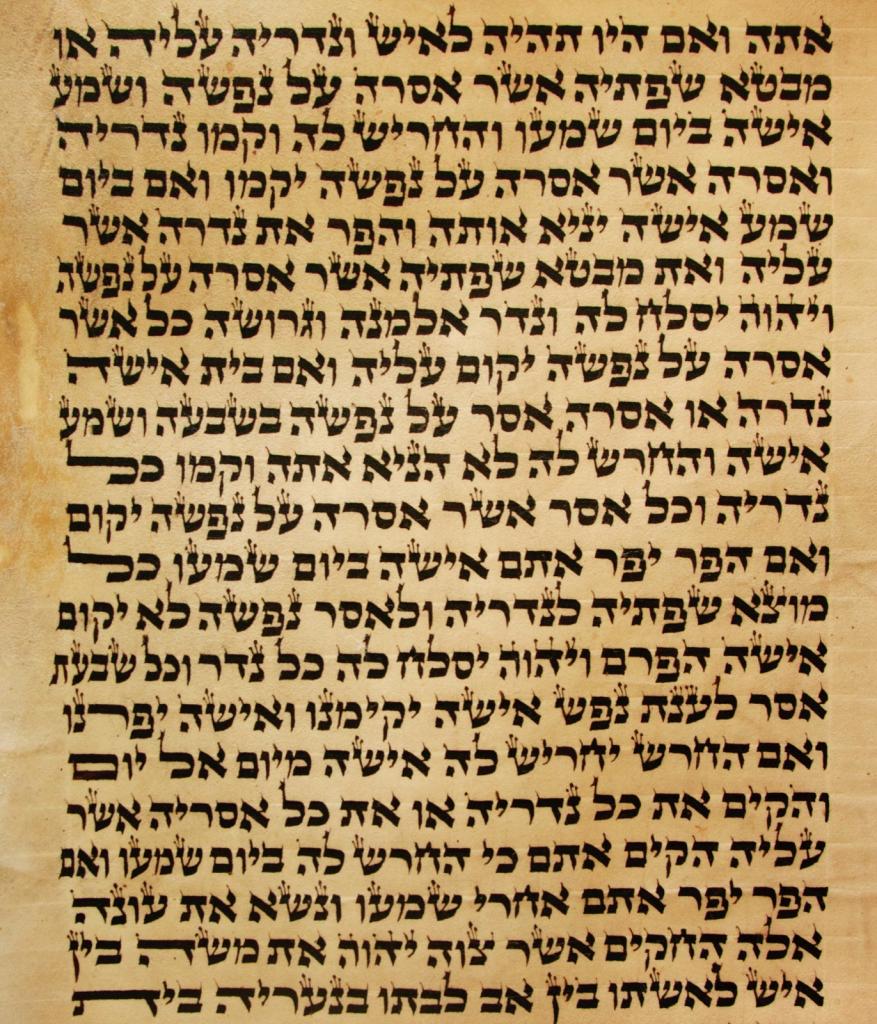 אתה ואם היו תהיה לאיש ונדריה עליה או
מבטא שפתיה אשר אסרה על נפשה ושמע
אישה ביום שמעו והחריש לה וקמו נדריה
ואסרה אשר אסרה על נפשה יקמו ואם ביום
שמע אישה יניא אותה והפר את נדרה אשר
עליה ואת מבטא שפתיה אשר אסרה על נפשה
ויהוה יסלח לה ונדר אלמנה וגרושה כל אשר
אסרה על נפשה יקום עליה ואם בית אישה
נדרה או אסרה אסר על נפשה בשבעה ושמע
אישה והחרש לה לא הניא אתה וקמו כל
נדריה וכל אסר אשר אסרה על נפשה יקום
ואם הפר יפר אתם אישה ביום שמעו כל
מוצא שפתיה לנדריה ולאסר נפשה לא יקום
אישה הפרם ויהוה יסלח לה כל נדר וכל שבעת
אסר לענת נפש אישה יקימנו ואישה יפרנו
ואם החרש יחריש לה אישה מיום אל יום
והקים את כל נדריה או את כל אסריה אשר
עליה הקים אתם כי החרש לה ביום שמעו ואם
הפר יפר אתם אחרי שמעו ונשא את עונה
אלה החקים אשר צוה יהוה את משה בין
איש לאשתו בין אב לבתו בנעריה בית